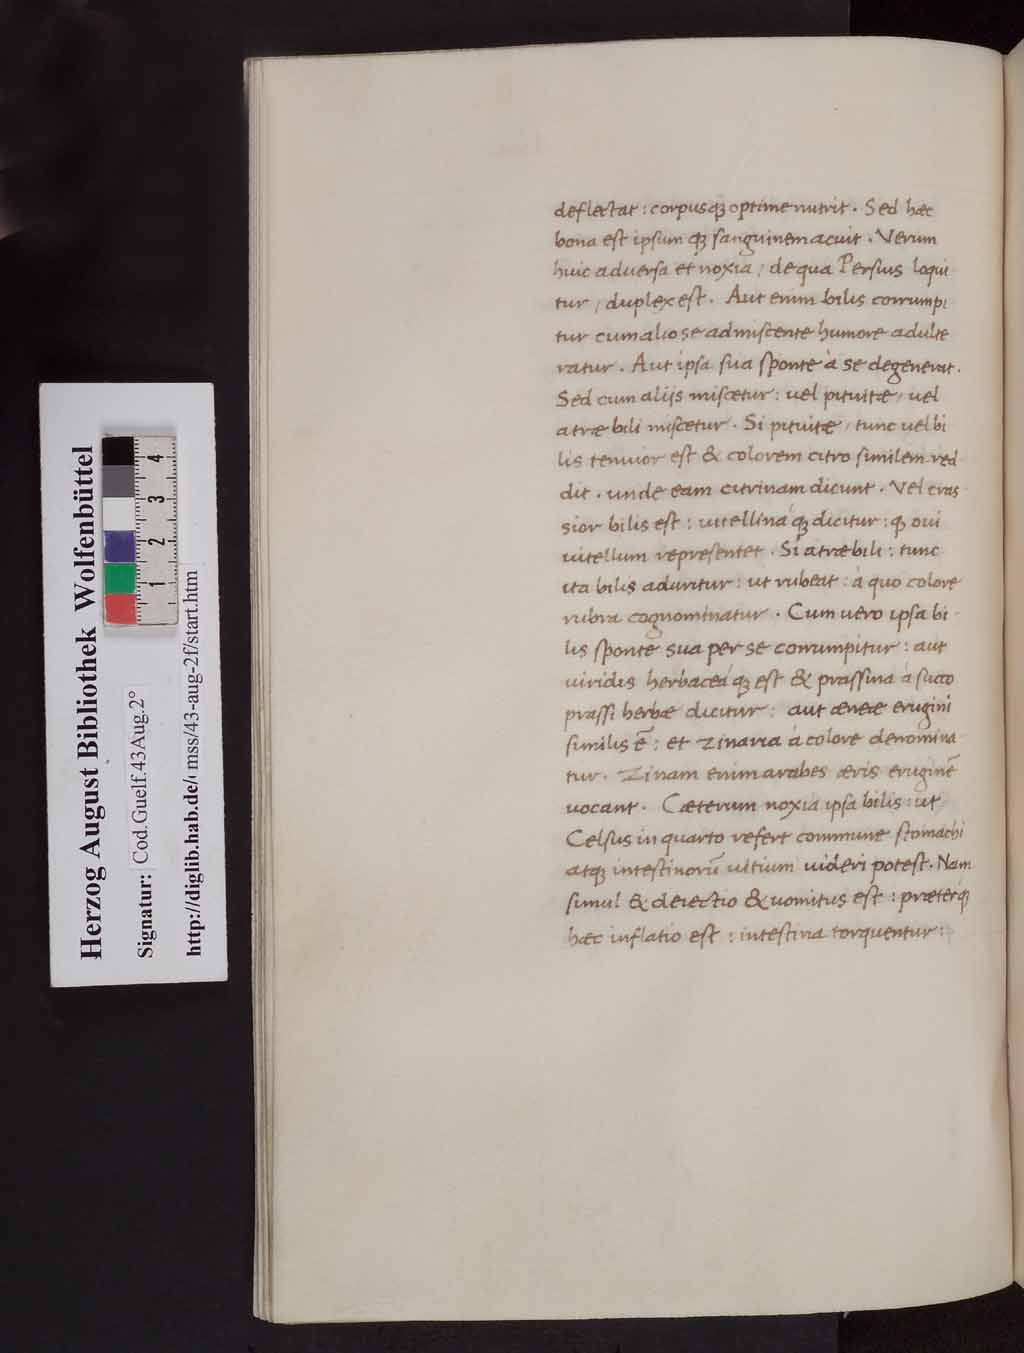 Herzog August Bibliothek Wolfenbüttel
Signatur: Cod.Guelf.43Aug.2°
http://diglib.hab.de/ mss/43-aug-2f/start.htm
1 2 3 4
deflectat : corpusq; optime nutrit . Sed hæc
bona est ipsumq; sanguinem acuit . Verum
huic aduersa et noxia / de qua Persius loqui
tur / duplex est . Aut enim bilis corrumpi
tur cum alio se admiscente humore adulte
ratur . Aut ipsa sua sponte à se degenerat .
Sed cum alijs miscetur : uel pituitæ / uel
atræ bili miscetur . Si pituitæ / tunc uel bi
lis tenuior est & colorem citro similem red
dit . unde eam citrinam dicunt . Vel cras
sior bilis est : uitellináq; dicitur : q; oui
uitellum representet . Si atræ bili : tunc
ita bilis aduritur : ut rubeat : à quo colore
rubra cognominatur . Cum uero ipsa bi
lis sponte sua per se corrumpitur : aut
uiridis herbaceáq; est & prassina à succo
prassi herbæ dicitur : aut æneæ erugini
similis ē : et zinaria à colore denomina
tur . Zinam enim arabes æris eruginē
uocant . Cæterum noxia ipsa bilis : ut
Celsus in quarto refert commune stomachi
atq; intestinorū uitium uideri potest . Nam
simul & deiectio & uomitus est : præterq́;
hæc inflatio est : intestina torquentur :